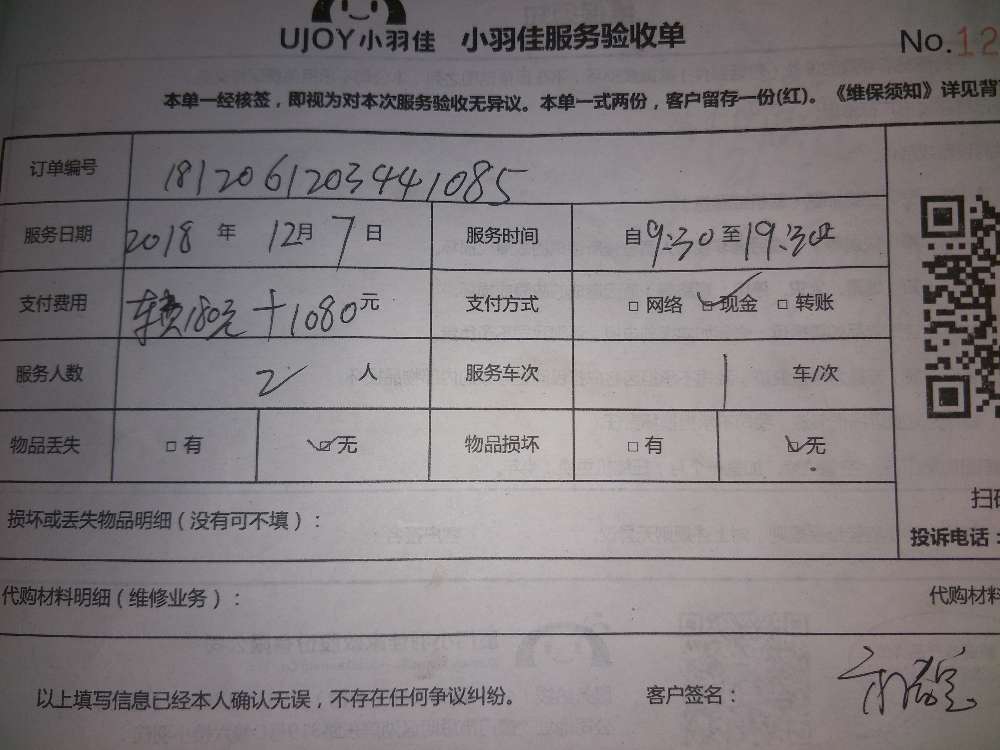 UJOY小羽佳 小羽佳服务验收单 No.12
本单一经核签，即视为对本次服务验收无异议。本单一式两份，客户留存一份(红)。《维保须知》详见背
订单编号 181206120344 1085
服务日期 2018 年 12月 7 日 服务时间 自 9:30 至 19:30止
支付费用 车费180元+1080元 支付方式 □网络 ☑现金 □转账
服务人数 2 人 服务车次 1 车/次
物品丢失 □有 ☑无 物品损坏 □有 ☑无
扫码
损坏或丢失物品明细（没有可不填）：
投诉电话：
代购材料明细（维修业务）： 代购材料
以上填写信息已经本人确认无误，不存在任何争议纠纷。 客户签名：